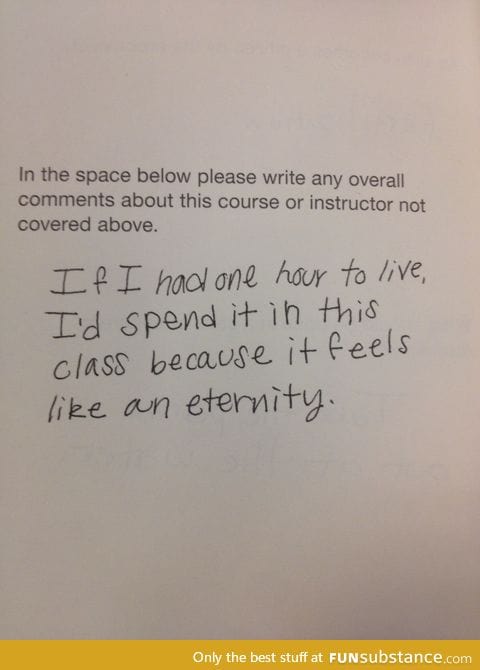 In the space below please write any overall
comments about this course or instructor not
covered above.
If I had one hour to live,
I'd spend it in this
class because it feels
like an eternity.
Only the best stuff at FUNsubstance.com